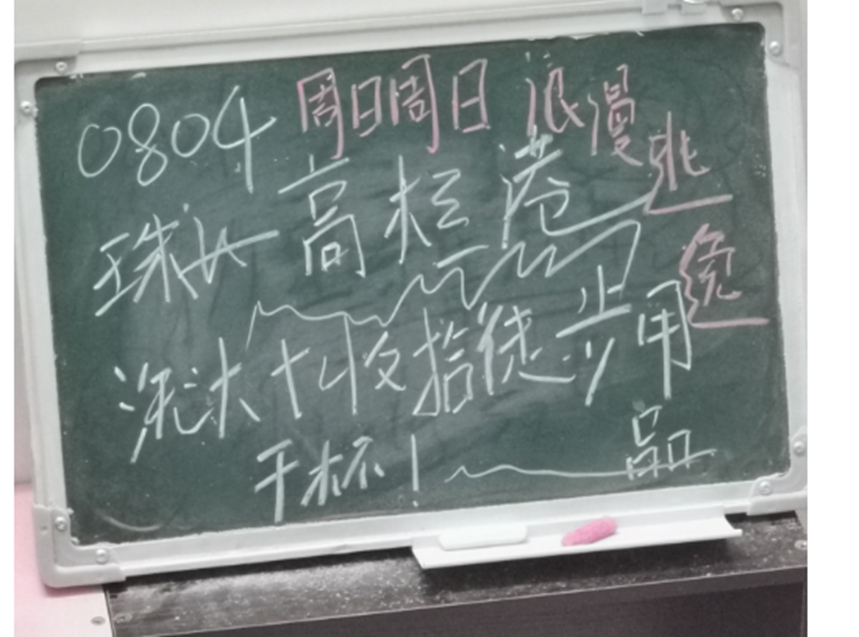 0804 周日周日 浪漫逃逸
珠海高栏港
洗 + 收拾徒步用品
干杯！